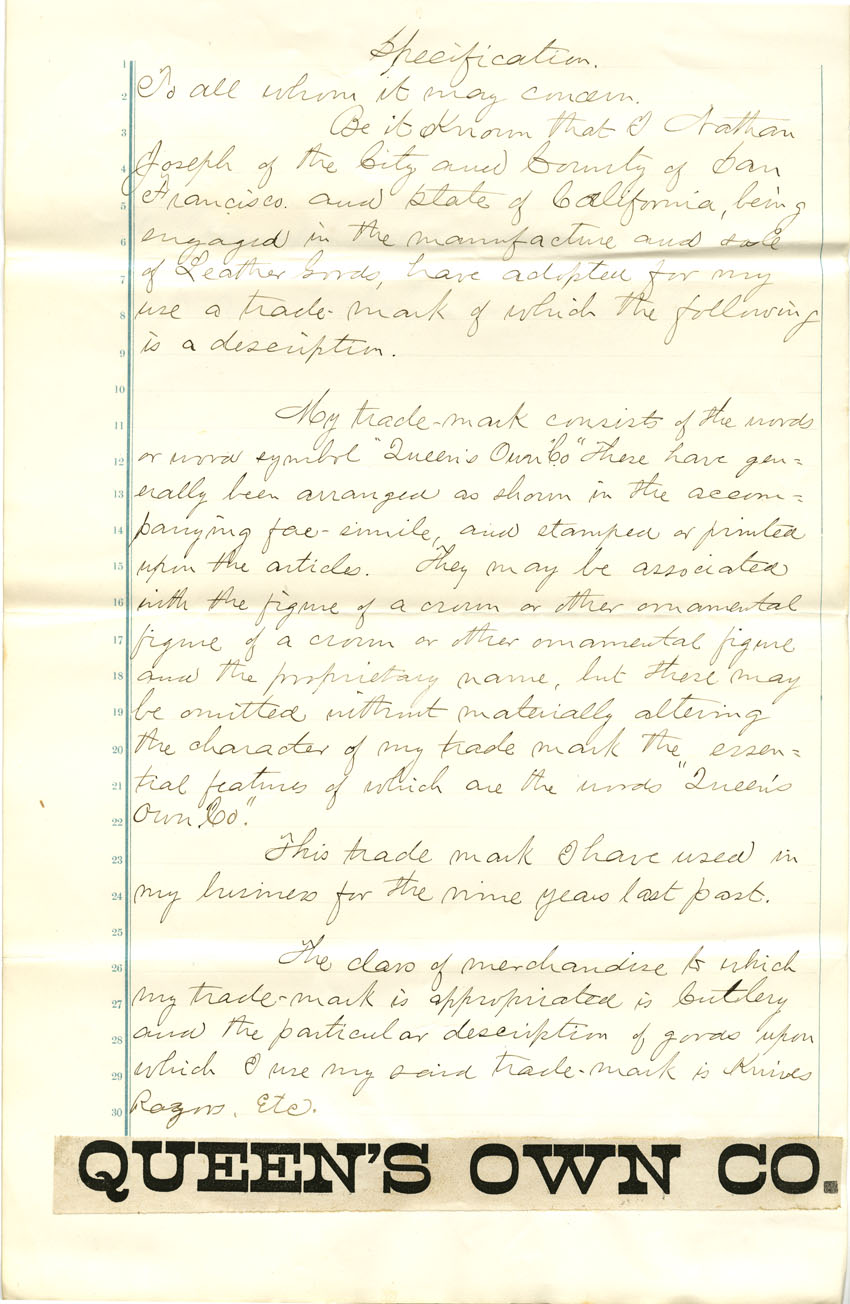 Specification.
1
2 To all whom it may concern.
3 Be it Known that I Nathan
4 Joseph of the City and County of San
5 Francisco. and State of California, being
6 engaged in the manufacture and sale
7 of Leather Goods, have adopted for my
8 use a trade-mark of which the following
9 is a description.
10
11 My trade-mark consists of the words
12 or word symbol "Queen's Own Co" These have gen=
13 erally been arranged as shown in the accom=
14 panying fac-simile, and stamped or printed
15 upon the articles. They may be associated
16 with the figure of a crown or other ornamental
17 figure of a crown or other ornamental figure
18 and the proprietary name, but these may
19 be omitted without materially altering
20 the character of my trade mark the essen=
21 tial features of which are the words "Queen's
22 Own Co".
23 This trade mark I have used in
24 my business for the nine years last past.
25
26 The class of merchandise to which
27 my trade-mark is appropriated is Cutlery
28 and the particular description of goods upon
29 which I use my said trade-mark is Knives
30 Razors, Etc.
QUEEN'S OWN CO.